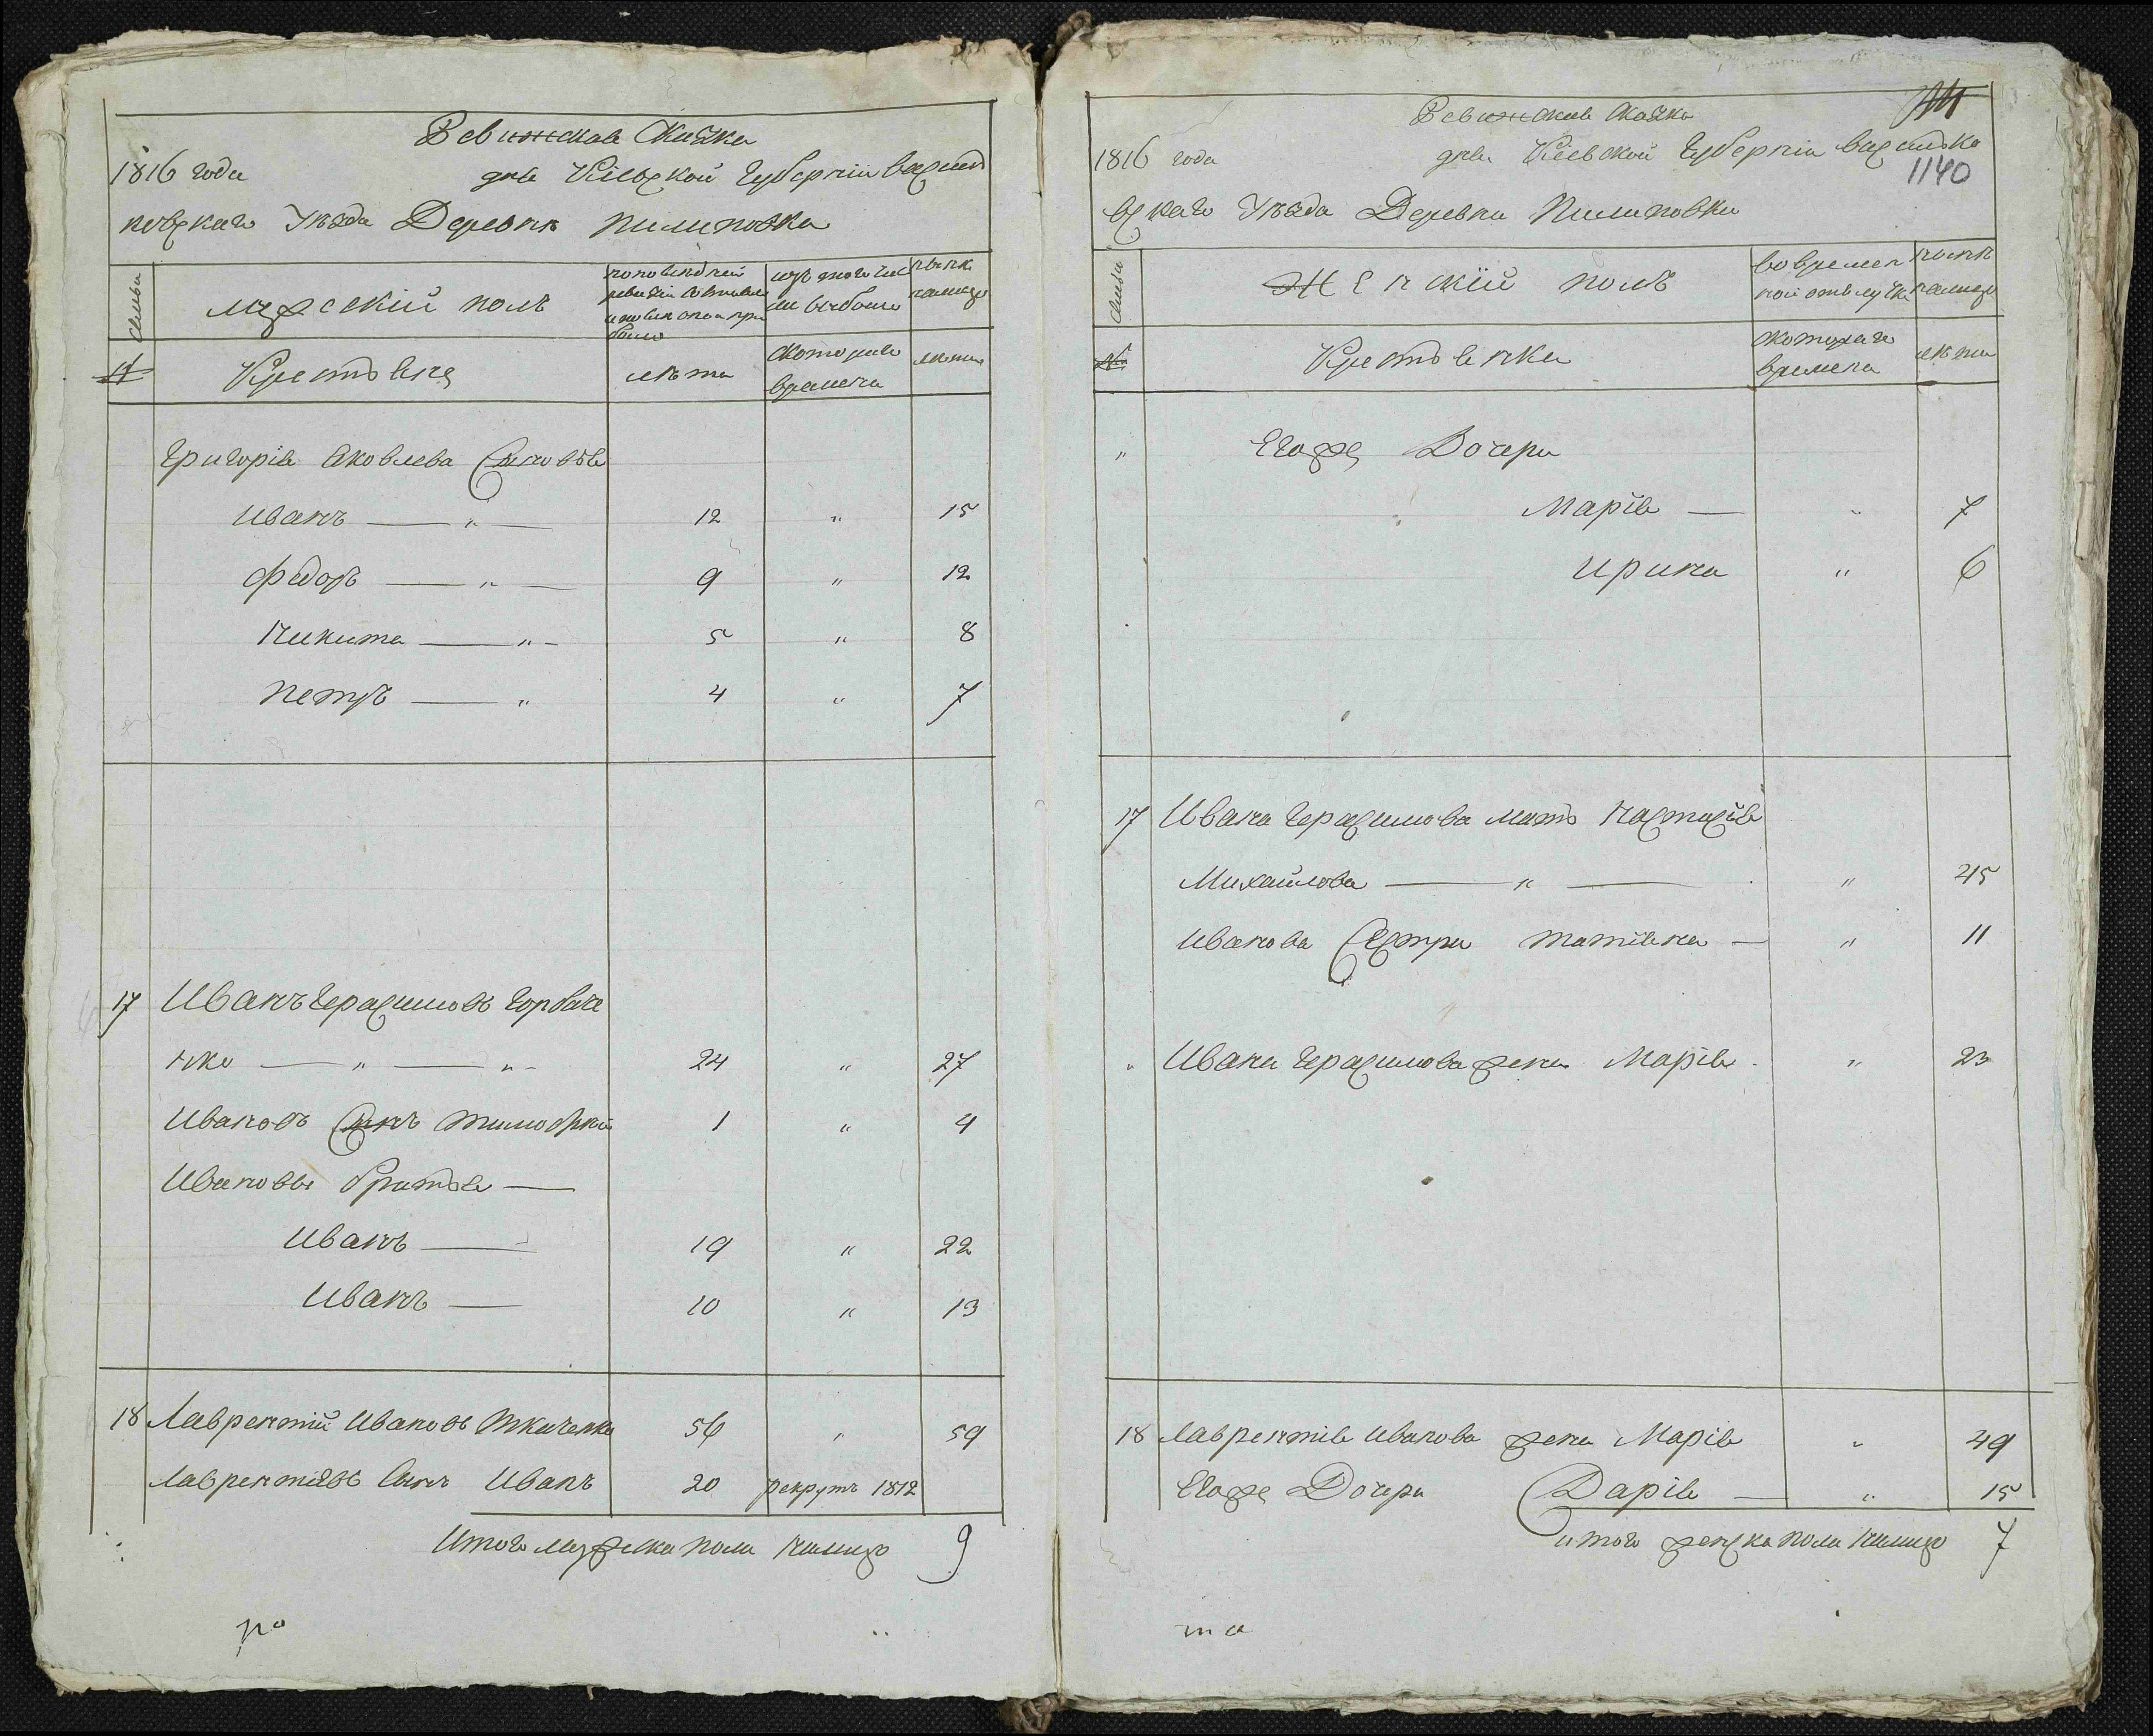 Ревижская Сказка
1816 года дня Кіевской Губерніи Василь
ковскаго Уѣзда Деревнѣ Пилиповка
семьи
мужескій полъ
по последней ревизіи состояло и после оной при было
изъ того чис ла выбыло
нынѣ налицо
Крестьяне
лѣта
скотораго времени
лѣта
Григорія Яковлева Сыновья
Иванъ — " — 12 " 15
Федоръ — " — 9 " 12
Никита — " — 5 " 8
Петръ — " 4 " 7
17 Иванъ Герасимовъ Горбаче
нко — " — " - 24 " 27
Ивановъ Сынъ Тимофѣй 1 " 4
Ивановы братья —
Иванъ — 19 " 22
Иванъ — 10 " 13
18 Лаврентій Ивановъ Ткаченко 56 " 59
Лаврентіявъ Сынъ Иванъ 20 рекрутъ 1812
Итого мужеска пола налицо 9
по
Ревижская Сказка
1816 года дня Кіевской Губерніи Василько
1140
вскаго Уѣзда Деревни Пилиповки
семьи
Женскій полъ
во времен ной отлучке
нынѣ налицо
Крестьянка
скотораго времени
лѣта
" Егоже Дочери
Марія — " 7
Ирина " 6
17 Ивана Герасимова мать Настасія
Михайлова — " — " 45
Иванова Сестра Татіяна — " 11
" Ивана Герасимова жена Марія - " 23
18 Лаврентія Иванова жена Марія " 49
Егоже Дочери Дарія — " 15
итого женска пола налицо 7
та